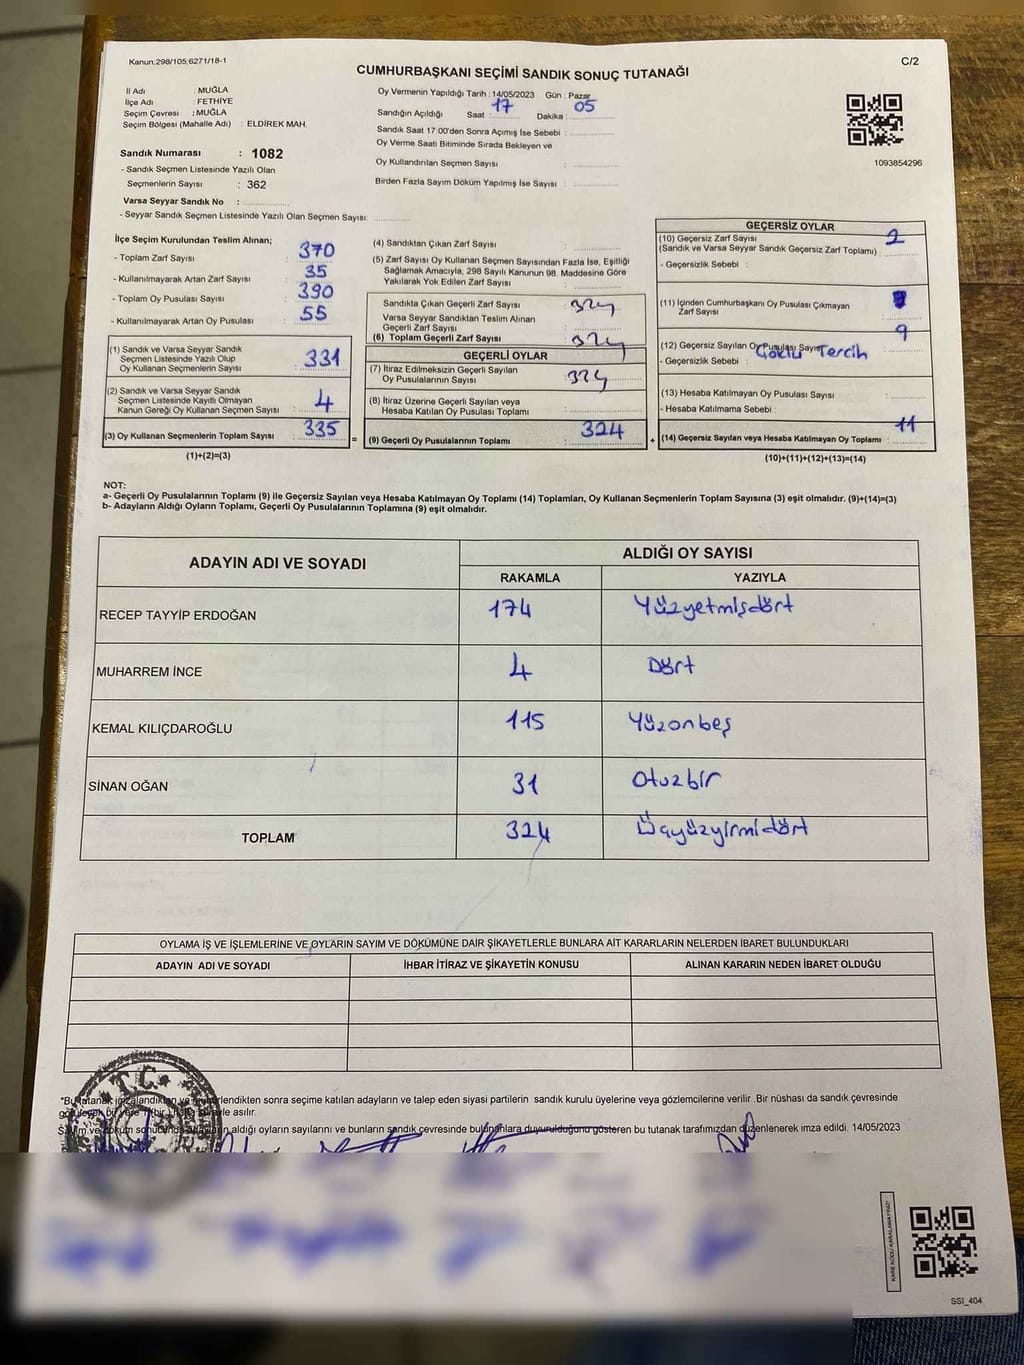 Kanun:298/105,6271/18-1
C/2
CUMHURBAŞKANI SEÇİMİ SANDIK SONUÇ TUTANAĞI
İl Adı : MUĞLA
İlçe Adı : FETHİYE
Seçim Çevresi : MUĞLA
Seçim Bölgesi (Mahalle Adı) : ELDİREK MAH.
Sandık Numarası : 1082
- Sandık Seçmen Listesinde Yazılı Olan
Seçmenlerin Sayısı : 362
Varsa Seyyar Sandık No :
- Seyyar Sandık Seçmen Listesinde Yazılı Olan Seçmen Sayısı:
Oy Vermenin Yapıldığı Tarih : 14/05/2023 Gün : Pazar
Sandığın Açıldığı Saat : 17 Dakika : 05
Sandık Saat 17:00'den Sonra Açımış İse Sebebi :
Oy Verme Saati Bitiminde Sırada Bekleyen ve
Oy Kullandırılan Seçmen Sayısı :
Birden Fazla Sayım Döküm Yapılmış İse Sayısı :
1093854296
İlçe Seçim Kurulundan Teslim Alınan;
- Toplam Zarf Sayısı : 370
- Kullanılmayarak Artan Zarf Sayısı : 35
- Toplam Oy Pusulası Sayısı : 390
- Kullanılmayarak Artan Oy Pusulası : 55
(1) Sandık ve Varsa Seyyar Sandık
Seçmen Listesinde Yazılı Olup
Oy Kullanan Seçmenlerin Sayısı : 331
(2) Sandık ve Varsa Seyyar Sandık
Seçmen Listesinde Kayıtlı Olmayan
Kanun Gereği Oy Kullanan Seçmen Sayısı : 4
(3) Oy Kullanan Seçmenlerin Toplam Sayısı : 335
(1)+(2)=(3)
(4) Sandıktan Çıkan Zarf Sayısı :
(5) Zarf Sayısı Oy Kullanan Seçmen Sayısından Fazla İse, Eşitliği
Sağlamak Amacıyla, 298 Sayılı Kanunun 98. Maddesine Göre
Yakılarak Yok Edilen Zarf Sayısı :
Sandıkta Çıkan Geçerli Zarf Sayısı : 324
Varsa Seyyar Sandıktan Teslim Alınan
Geçerli Zarf Sayısı :
(6) Toplam Geçerli Zarf Sayısı : 324
GEÇERLİ OYLAR
(7) İtiraz Edilmeksizin Geçerli Sayılan
Oy Pusulalarının Sayısı : 324
(8) İtiraz Üzerine Geçerli Sayılan veya
Hesaba Katılan Oy Pusulası Toplamı :
= (9) Geçerli Oy Pusulalarının Toplamı : 324 +
GEÇERSİZ OYLAR
(10) Geçersiz Zarf Sayısı
(Sandık ve Varsa Seyyar Sandık Geçersiz Zarf Toplamı) : 2
- Geçersizlik Sebebi :
(11) İçinden Cumhurbaşkanı Oy Pusulası Çıkmayan
Zarf Sayısı :
(12) Geçersiz Sayılan Oy Pusulası Sayısı : 9
- Geçersizlik Sebebi : Çoklu Tercih
(13) Hesaba Katılmayan Oy Pusulası Sayısı :
- Hesaba Katılmama Sebebi :
(14) Geçersiz Sayılan veya Hesaba Katılmayan Oy Toplamı : 11
(10)+(11)+(12)+(13)=(14)
NOT:
a- Geçerli Oy Pusulalarının Toplamı (9) ile Geçersiz Sayılan veya Hesaba Katılmayan Oy Toplamı (14) Toplamları, Oy Kullanan Seçmenlerin Toplam Sayısına (3) eşit olmalıdır. (9)+(14)=(3)
b- Adayların Aldığı Oyların Toplamı, Geçerli Oy Pusulalarının Toplamına (9) eşit olmalıdır.
ADAYIN ADI VE SOYADI ALDIĞI OY SAYISI
RAKAMLA YAZIYLA
RECEP TAYYİP ERDOĞAN 174 Yüzyetmişdört
MUHARREM İNCE 4 Dört
KEMAL KILIÇDAROĞLU 115 Yüzonbeş
SİNAN OĞAN 31 Otuzbir
TOPLAM 324 Üçyüzyirmidört
OYLAMA İŞ VE İŞLEMLERİNE VE OYLARIN SAYIM VE DÖKÜMÜNE DAİR ŞİKAYETLERLE BUNLARA AİT KARARLARIN NELERDEN İBARET BULUNDUKLARI
ADAYIN ADI VE SOYADI İHBAR İTİRAZ VE ŞİKAYETİN KONUSU ALINAN KARARIN NEDEN İBARET OLDUĞU
T.C.
*Bu tutanak imzalandıktan ve mühürlendikten sonra seçime katılan adayların ve talep eden siyasi partilerin sandık kurulu üyelerine veya gözlemcilerine verilir .Bir nüshası da sandık çevresinde
görülecek bir yere 1 (bir) hafta süreyle asılır.
Sayım ve döküm sonucunda adayların aldığı oyların sayılarını ve bunların sandık çevresinde bulunanlara duyurulduğunu gösteren bu tutanak tarafımızdan düzenlenerek imza edildi. 14/05/2023
KARE KODU KARALAMAYINIZ!
SSİ_404